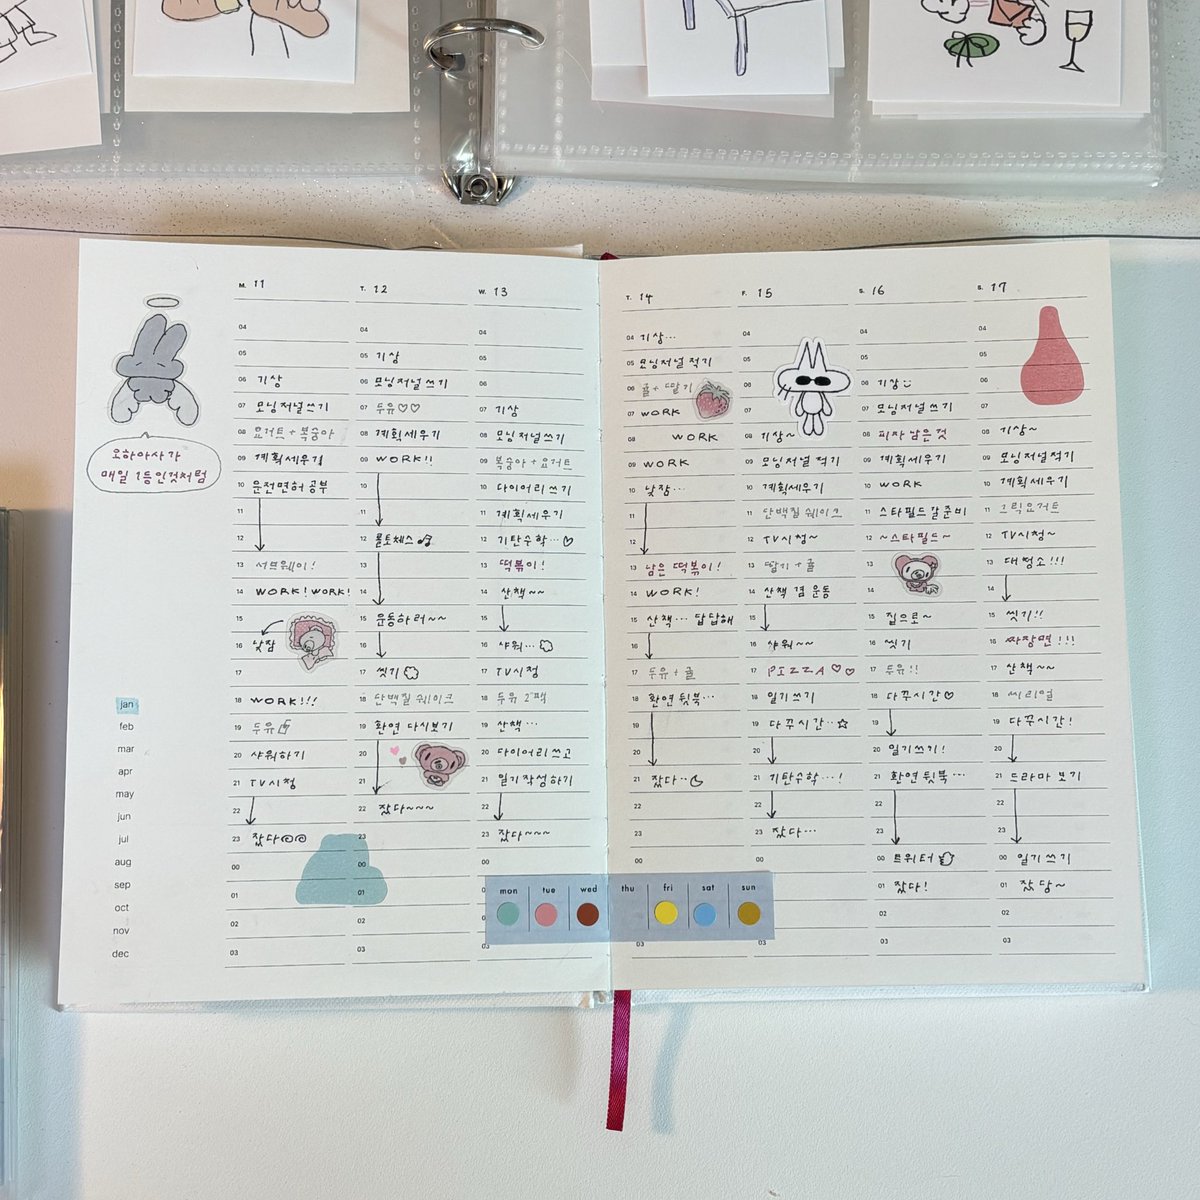 M. 11
04
05
06 기상
07 모닝저널쓰기
08 요거트 + 복숭아
09 계획세우기
10 운전면허 공부
11
12
13 서브웨이!
14 WORK! WORK!
15
16 낮잠
17
18 WORK!!!
19 두유
20 샤워하기
21 TV시청
22
23 잤다
00
01
02
03
오하아사가
매일 1등인것처럼
jan
feb
mar
apr
may
jun
jul
aug
sep
oct
nov
dec
T. 12
04
05 기상
06 모닝저널 쓰기
07 두유♡♡
08 계획세우기
09 WORK!!
10
11
12 몰토체스
13
14
15 운동하러~~
16
17 씻기
18 단백질 쉐이크
19 환연 다시보기
20
21
22 잤다~~~
23
00
01
02
03
W. 13
04
05
06
07 기상
08 모닝저널쓰기
09 복숭아 + 요거트
10 다이어리쓰기
11 계획세우기
12 기탄수학…♡
13 떡볶이!
14 산책~~
15
16 샤워~~
17 TV시청
18 두유 2팩
19 산책…
20 다이어리쓰고
21 일기작성하기
22
23 잤다~~~
00
mon tue wed thu fri sat sun
T. 14
04 기상…
05 모닝저널 적기
06 귤 + 딸기
07 WORK
08 WORK
09 WORK
10 낮잠…
11
12
13 남은 떡볶이!
14 WORK!
15 산책… 답답해
16
17 두유 + 귤
18 환연 뒷북…
19
20
21 잤다…
22
23
00
03
F. 15
04
05
06
07
08 기상~
09 모닝저널 적기
10 계획세우기
11 단백질 쉐이크
12 TV시청~
13 딸기 + 귤
14 산책 겸 운동
15
16 샤워~~
17 PIZZA♡♡
18 일기쓰기
19 다꾸시간..☆
20
21 기탄수학…!
22
23 잤다…
00
03
S. 16
04
05
06 기상
07 모닝저널쓰기
08 피자 남은것
09 계획세우기
10 WORK
11 스타필드갈준비
12 ~스타필드~
13
14
15 집으로~
16 씻기
17 두유!!
18 다꾸시간♡
19
20 일기쓰기!
21 환연뒷북…
22
23
00 트위터
01 잤다!
02
03
S. 17
04
05
06
07
08 기상~
09 모닝저널적기
10 계획세우기
11 그릭요거트
12 TV시청~
13 대청소!!!
14
15 씻기!!
16 짜장면!!!
17 산책~~
18 씨리얼
19 다꾸시간!
20
21 드라마보기
22
23
00 일기쓰기
01 잤당~
02
03